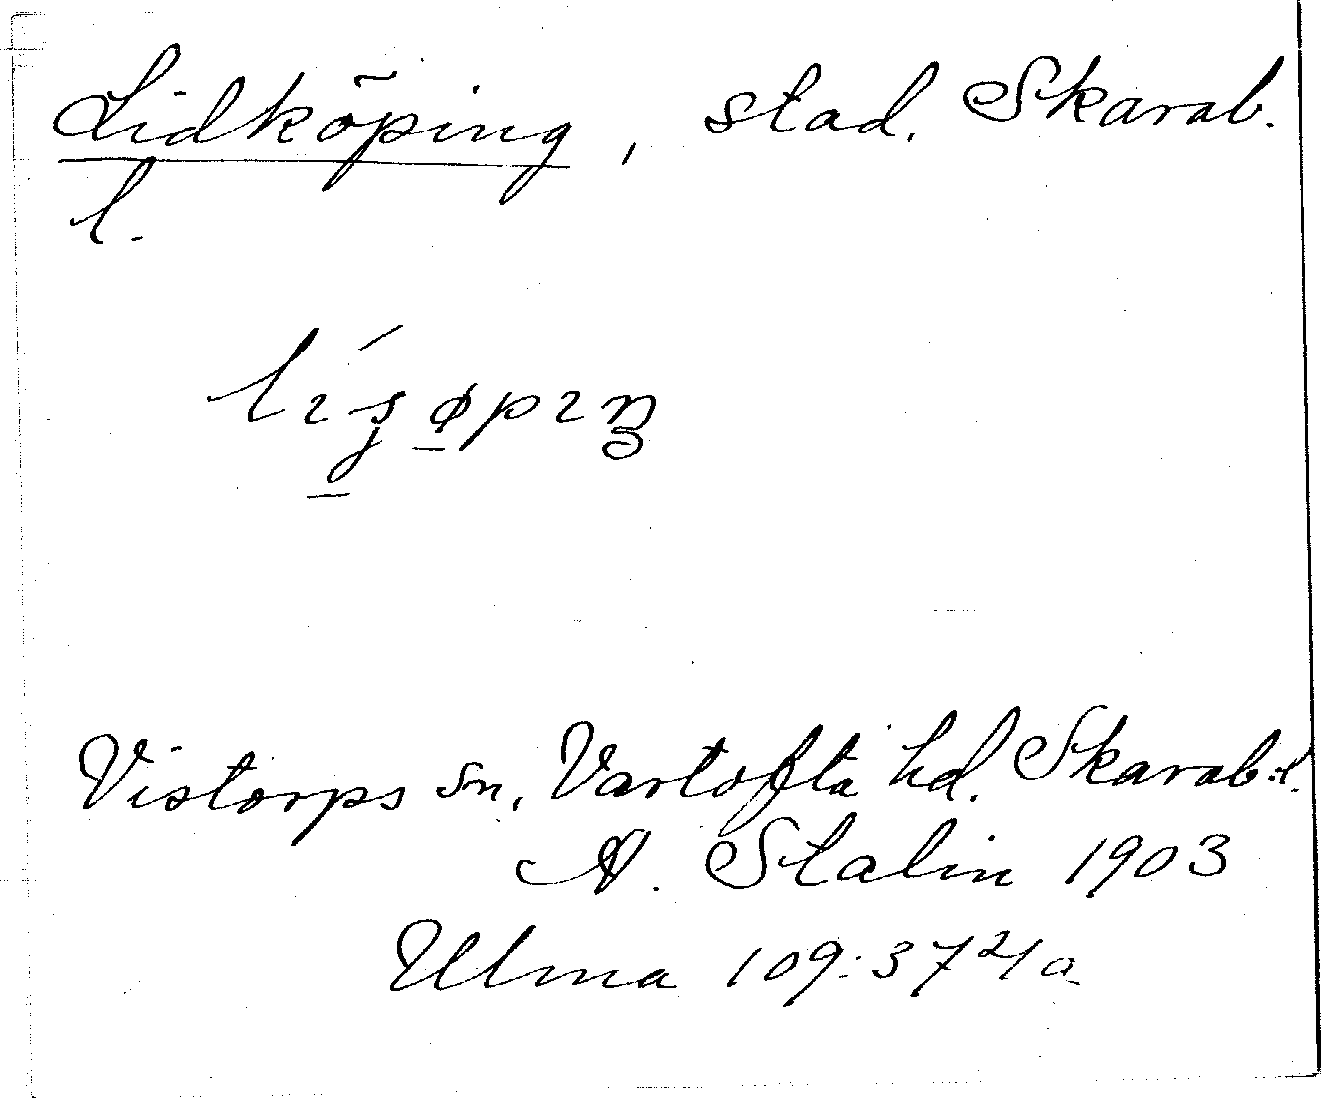 Lidköping, stad. Skarab.
l.
Vistorps sn, Vartofta hd. Skarab.l.
A. Stalin 1903
Ulma 109:3 7